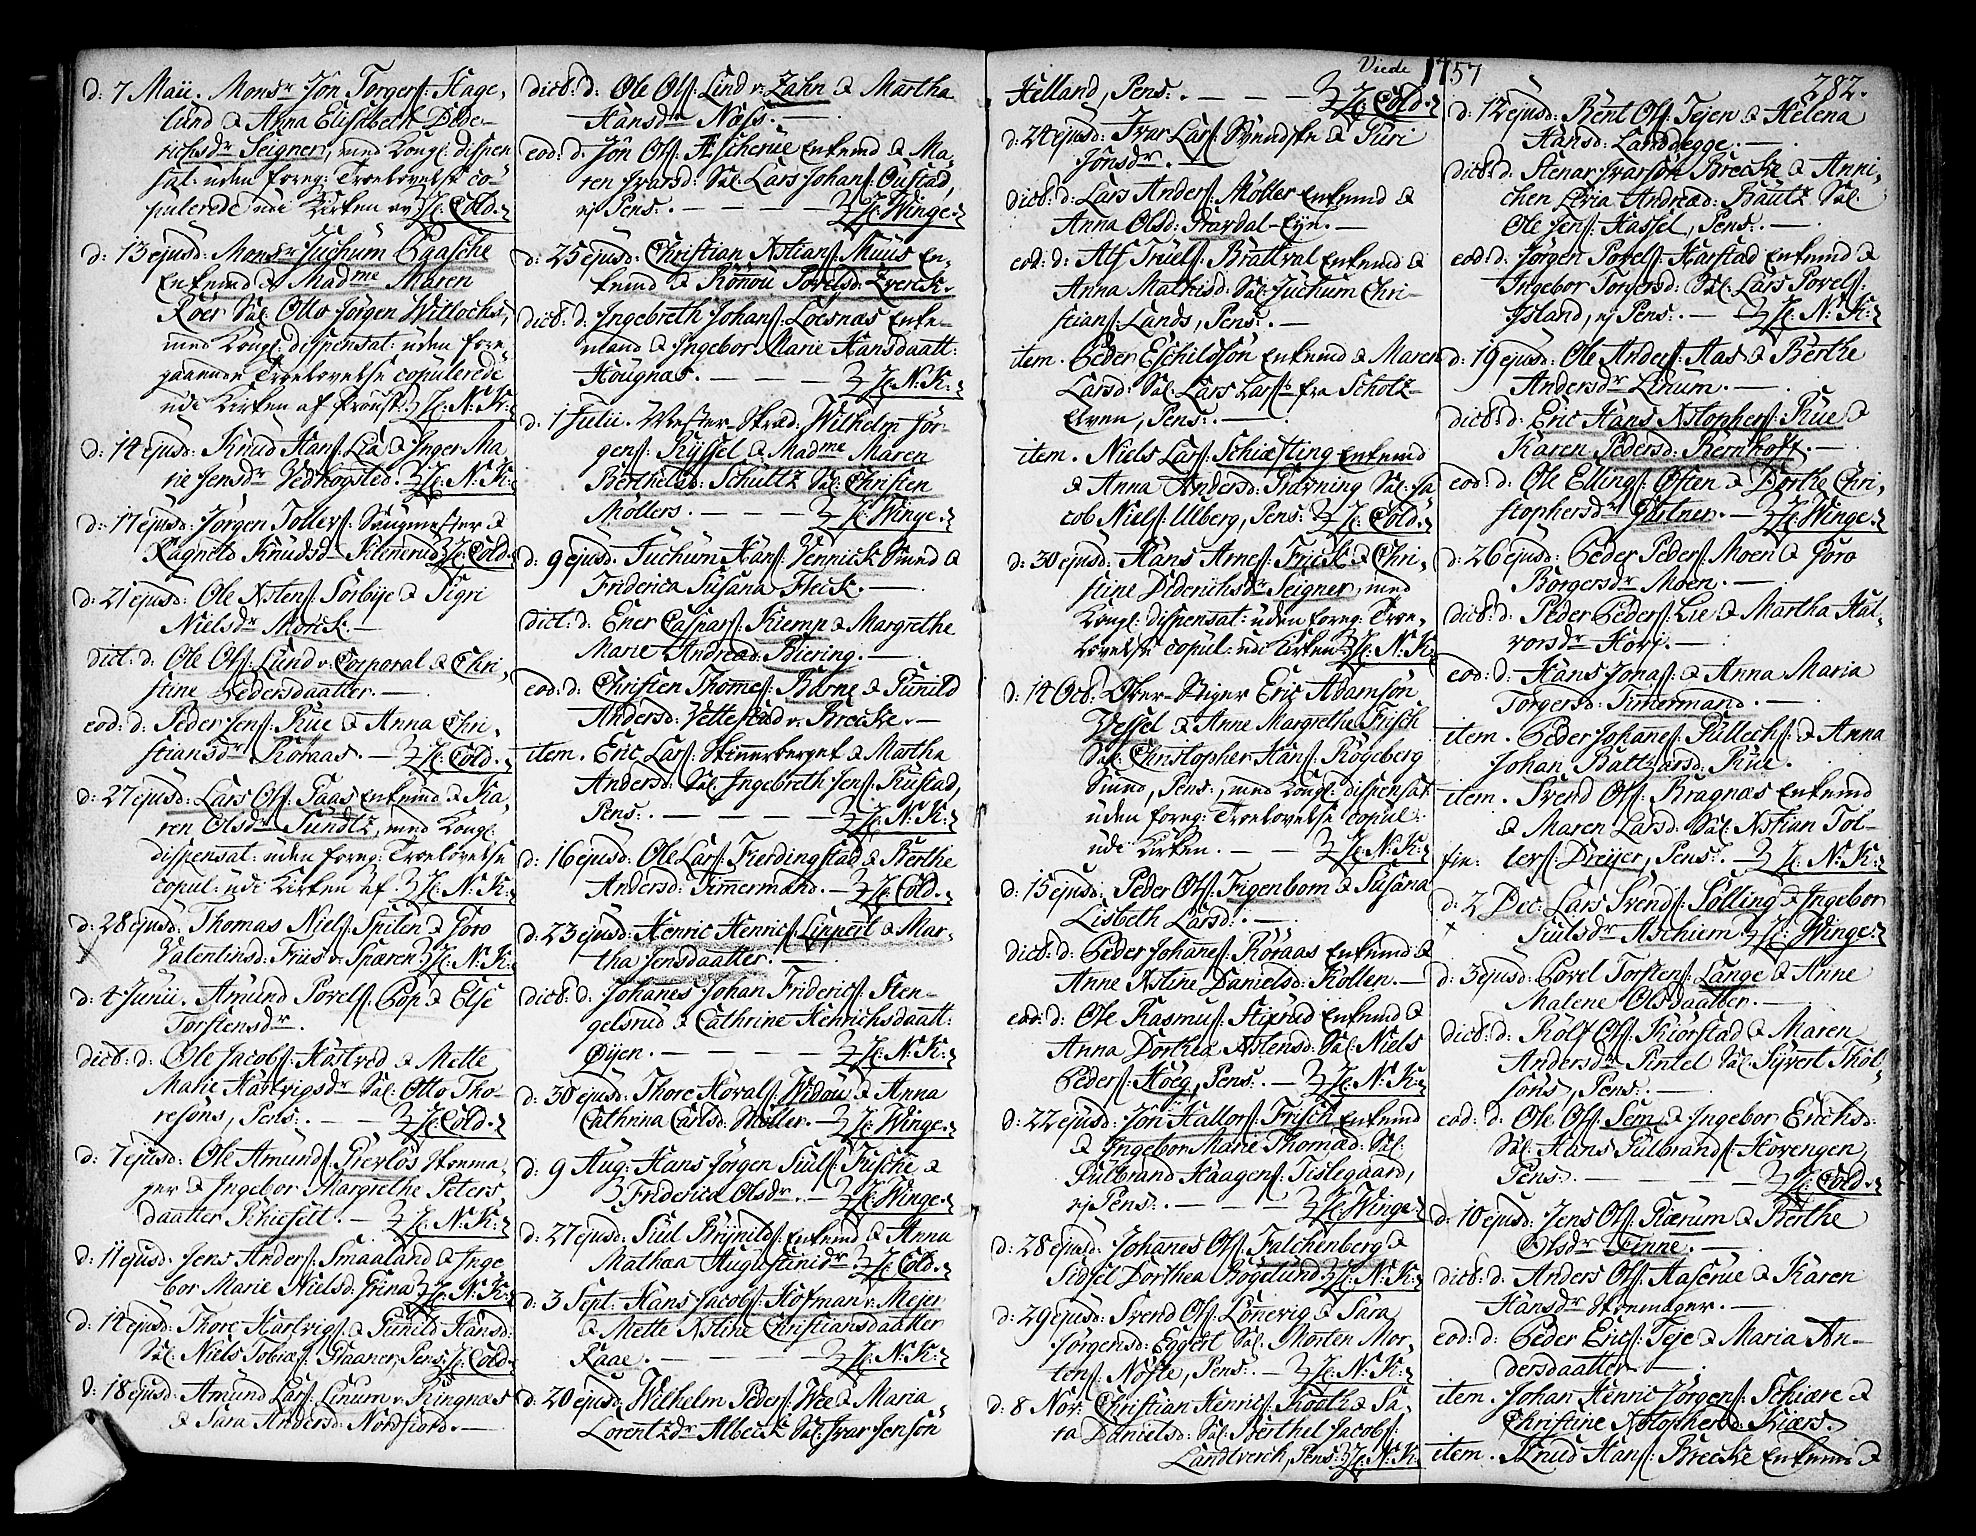 d: 7 Maii. Monsr Jon Torgers: Hage-
lund & Anna Elisabeth Dide-
richsdr Seigner, med Kongl: dispen
sat: uden foreg: Troelovelse co-
pulerede udi Kirken av H: Cold.
d: 13 ejusd: Monsr Juchum Paasche
Enkemd & Madme Maren
Röer Sal: Otto Jörgen Witlochs,
med Kongl: dispensat: uden fore
gaaende Troelovelse copulerede
udi Kirken af H: N: K:
d: 14 ejusd: Knud Hans: Lia & Inger Ma,
rie Jensdr Vedhogsted. H: N: K:
d: 17 ejusd: Jörgen Tollers: &
Ragnild Knudsd: H: Cold.
d: 21 ejusd: Ole Xstens: Sorbye & Sigri
Nielsdr Morck. —
dict: d: Ole Ols: Lund v. Corporal & Chri,
stine Pedersdaatter. —
eod: d: Peder Jens: Rue & Anna Chri,
stiansdr Röraas. — H: Cold.
d: 27 ejusd: Lars Ols: Saas Enkemd & Ka,
ren Olsdr Sundtz, med Kongl:
dispensat: uden foreg: Troelovelse
copul: udi Kirken af H: N: K:
d: 28 ejusd: Thomas Niels: Spiten & Goro
x Valentinsd: Friis v. Spæren H: N: K:
d: 4 Junii. Amund Povels: Bop & Else
Torstensdr.
dict: d: Ole Jacobs: Hastved & Mette
Marie Hartvigsdr Sal: Otto Tho-
resöns, Pens: — H: Cold.
d: 7 ejusd: Ole Amunds: Prevlös Skoema,
ger & Ingebor Margrethe Peters
daatter — H: N: K:
d: 11 ejusd: Jens Anders: Smaaland & Inge
bor Marie Nielsd: Grina H: N: K:
d: 14 ejusd: Thore Hartvigs: & Gunild Hansd:
Sal: Niels Tobiæs: Staaner, Pens: H: Cold.
d: 18 ejusd: Amund Lars: Linum v. Ringnæs
& Sara Andersd: Nordfiord. —
dict: d: Ole Ols: Lind v. Zahn & Martha
Hansdr Næss. —
eod: d: Jon Ols: Ascherue Enkemd & Ma,
ren Ivarsd: Sal: Lars Johans: Oustad,
ej Pens: — H: Winge.
d: 25 ejusd: Christian Xstians: Muus En,
kemd & Rönou Povelsd: Zverck.
dict: d: Ingebreth Johans: Loesnæs Enke-
mand & Ingebor Marie Hansdaatt:
Hougnæs. — H: N: K:
d: 1 Julii. Mester-Skræd: Wilhelm Jör-
gens: Ryssel & Madme Maren
Berthelsd: Schultz Sal: Christen
Möllers. — H: Winge.
d: 9 ejusd: Juchum Hans: Vennick Smed &
Friderica Susana Fleck. —
dict: d: Ener Caspars: Kiemp & Margrethe
Marie Andread: Biering. —
eod: d: Christen Thomes: Barne & Gunild
Andersd: Vettestad v. Brecke. —
item. Eric Lars: Skinnerberget & Martha
Andersd: Sal: Ingebreth Jens: Rustad,
Pens: — H: N: K:
d: 16 ejusd: Ole Lars: Fierdingstad & Berthe
Andersd: Timermand. — H: Cold.
d: 23 ejusd: Henric Henrics: Lippert & Mar-
tha Jensdaatter. —
dict: d: Johanes Johan Friderics: Sten-
gelsrud & Cathrine Henrichsdaatt:
Öyen. — H: N: K:
d: 30 ejusd: Thore Hovals: Widou & Anna
Cathrina Carlsd: Möller. — H: Winge.
d: 9 Aug: Hans Jörgen Siuls: Fusche &
Friderica Olsdr. — H: Winge.
d: 27 ejusd: Siul Brynilds: Enkemd & Anna
Mathea Augustinidr H: Cold.
d: 3 Sept: Hans Jacobs: Hofman v. Mejer
& Mette Xstine Christiansdaatter
Raae. — H: N: K:
d: 20 ejusd: Wilhelm Peders: Wee & Maria
Lorentzdr Albeck Sal: Ivar Jensön
Viede 1757
282.
Helland, Pens: — H: Cold.
d: 24 ejusd: Ivar Lars: & Guri
Jonsdr. —
dict: d: Lars Anders: Möller Enkemd &
Anna Olsd: Travdal-Eyn. —
eod: d: Alf Truels: Brattval Enkemd &
Anna Mathisd: Sal: Juchum Chri-
stians: Lands, Pens: —
item. Peder Eschildsön Enkemd & Maren
Larsd: Sal: Lars Lars: fra Scholtz-
Elven, Pens: —
item. Niels Lars: Schiesting Enkemd
& Anna Andersd: Travning Sal: Ja
cob Niels: Ulberg, Pens: H: Cold.
d: 30 ejusd: Hans Arnes: Frisak & Chri,
stine Diderichsdr Seigner, med
Kongl: dispensat: uden foreg: Troe,
lovelse copul: udi Kirken H: N: K:
d: 14 Oct. Over-Stiger Eric Adamsön
Wessel & Anne Margrethe Frisch
Sal: Christopher Hans: Rögeberg
Smed, Pens:, med Kongl: dispensat
uden foreg: Troelovelse copul:
udi Kirken. — H: N: K:
d: 15 ejusd: Peder Ols: Figenbom & Susana
Lisbeth Larsd: —
dict: d: Peder Johanes: Röraas Enkemd &
Anne Xstine Danielsd: Kollen. —
eod: d: Ole Rasmus: Stixrud Enkemd &
Anna Dorthea Xstensd: Sal: Niels
Peders: Höeg, Pens: — H: N: K:
d: 22 ejusd: Jon Hallors: Frisch Enkemd
& Ingebor Marie Thomæd: Sal:
Gulbrand Haagens: Tislegaard,
ej Pens: — H: Winge.
d: 28 ejusd: Johanes Ols: Falchenberg &
Sidsel Dorthea Bogelund H: N: K:
d: 29 ejusd: Svend Ols: Lönevig & Sara
Jörgensd: Eggert Sal: Morten Mor-
tens: Nösle, Pens: — H: N: K:
d: 8 Nov: Christian Henrics: Kooth & Sa-
ra Danielsd: Sal: Berthel Jacobs:
Landverck, Pens: H: N: K:
d: 12 ejusd: Bent Ols: Tejen & Helena
Hansd: Landdegge. —
dict: d: Stenar Ivarsön Brecke & Anni,
chen Andread: Bautz Sal:
Ole Jens: Hassel, Pens: —
eod: d: Jörgen Povels: Harstad Enkemd &
Ingebor Torgersd: Sal: Lars Povels:
Island, ej Pens: — H: N: K:
d: 19 ejusd: Ole Anders: Aas & Berthe
Andersdr Linum. —
dict: d: Eric Hans Xstophers: Rue &
Karen Pedersd: Bernhoft. —
eod: d: Ole Ellings: Osten & Dorthe Chri,
stophersdr Gartner. — H: Winge.
d: 26 ejusd: Peder Peders: Moen & Goro
Borgersdr Moen. —
dict: d: Peder Peders: Lie & Martha Hal,
vorsdr Hovi. —
eod: d: Hans Jonas: & Anna Maria
Torgersd: Timermand. —
item. Peder Johanes: Gullechs: & Anna
Johan Baltzarsd: Rue.
item. Svend Ols: Kragnæs Enkemd
& Maren Larsd: Sal: Xstian Tol-
lers: Dreyer, Pens: — H: N: K:
d: 2 Dec: Lars Svends: Sölling & Ingebor
x Siulsdr Aschiem H: Winge.
d: 3 ejusd: Povel Torstens: Lange & Anne
Malene Olsdaatter. —
dict: d: Rolf Ols: Kiörstad & Maren
Andersdr Pintel Sal: Syvert Thol-
söns, Pens: —
eod: d: Ole Ols: Sem & Ingebor Erichsd:
Sal: Hans Gulbrands: Hovengen,
Pens: — H: Cold.
d: 10 ejusd: Jens Ols: Rærum & Berthe
Olsdr Finne. —
dict: d: Anders Ols: Aaserue & Karen
Hansdr Skoemager. —
eod: d: Peder Erics: Teje & Maria An-
dersdaatter. —
item. Johan Henric Jörgens: Schiære &
Christine Xstophersd: Kiærs.
item. Knud Hans: Brecke Enkemd &